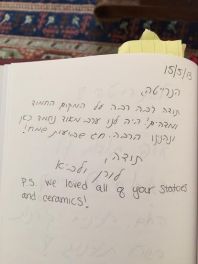 15/5/13
הנרייטה,
תודה רבה רבה על המקום החמוד
והמדהים! היה לנו ערב מאוד נחמד כאן
ונהננו הרבה. חג שבועות שמח!
תודה,
לורן
P.S. we loved all of your statues
and ceramics!